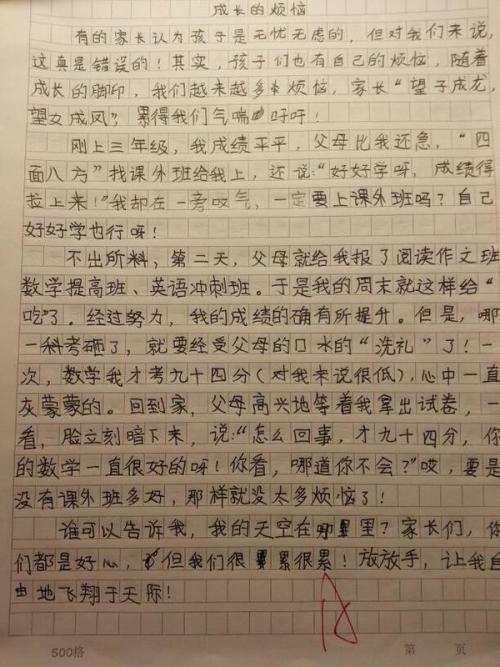 成长的烦恼
有的家长认为孩子是无忧无虑的，但对我们来说，
这真是错误的！其实，孩子们也有自己的烦恼，随着
成长的脚印，我们越来越多烦恼，家长“望子成龙，
望女成凤”，累得我们气喘吁吁！
刚上三年级，我成绩平平，父母比我还急，“四
面八方”找课外班给我上，还说：“好好学呀，成绩得
拉上来！”我却在一旁叹气，一定要上课外班吗？自己
好好学也行呀！
不出所料，第二天，父母就给我报了阅读作文班
数学提高班、英语冲刺班。于是我的周末就这样给“
吃”了。经过努力，我的成绩的确有所提升。但是，哪
一科考砸了，就要经受父母的口水的“洗礼”了！一
次，数学我才考九十四分（对我来说很低），心中一直
灰蒙蒙的。回到家，父母高兴地等着我拿出试卷，一
看，脸立刻暗下来，说：“怎么回事，才九十四分，你
的数学一直很好的呀！你看，哪道你不会？”哎，要是
没有课外班多好，那样就没太多烦恼了！
谁可以告诉我，我的天空在哪里？家长们，你
们都是好心，但我们很累很累！放放手，让我自
由地飞翔于天际！
500格
第 页